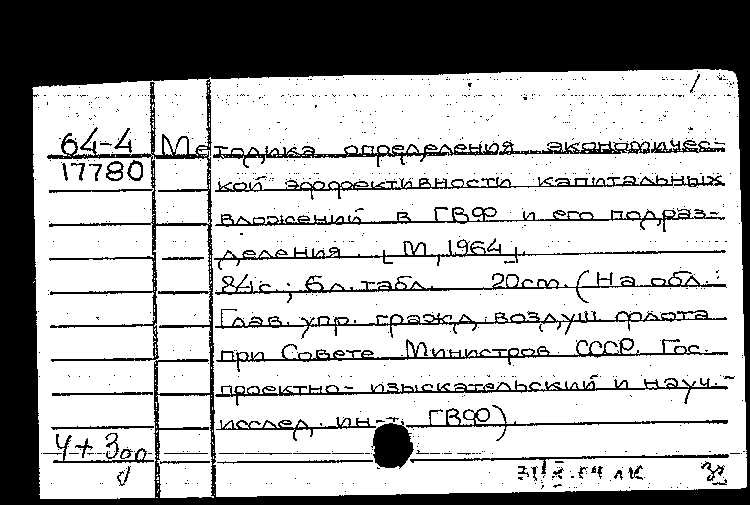 64-4 Методика определения экономичес-
17780 кой эффективности капитальных
вложений в ГВФ и его подраз-
деления. [М, 1964].
84с.; бл. табл. 20см. (На обл.:
Глав. упр. гражд. воздуш. флота
при Совете Министров СССР. Гос.
проектно-изыскательский и науч.-
исслед. ин-т ГВФ).